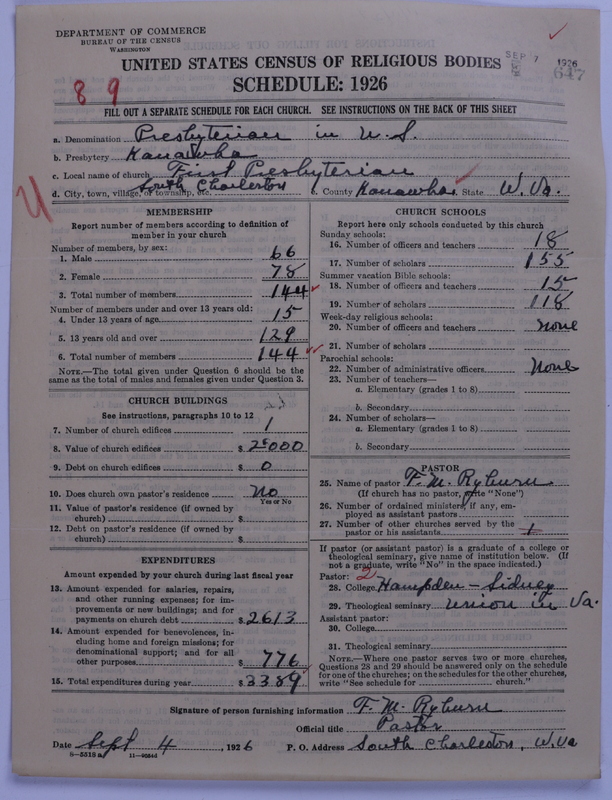 DEPARTMENT OF COMMERCE
BUREAU OF THE CENSUS
WASHINGTON
UNITED STATES CENSUS OF RELIGIOUS BODIES
SCHEDULE: 1926
SEP 7 1926
647
8 9
FILL OUT A SEPARATE SCHEDULE FOR EACH CHURCH. SEE INSTRUCTIONS ON THE BACK OF THIS SHEET
a. Denomination Presbyterian in U.S.
b. Presbytery Kanawha
c. Local name of church First Presbyterian
d. City, town, village, or township, etc. South Charleston e. County Kanawha State W. Va.
MEMBERSHIP
Report number of members according to definition of member in your church
Number of members, by sex:
1. Male 66
2. Female 78
3. Total number of members 144
Number of members under and over 13 years old:
4. Under 13 years of age 15
5. 13 years old and over 129
6. Total number of members 144
NOTE.—The total given under Question 6 should be the same as the total of males and females given under Question 3.
CHURCH BUILDINGS
See instructions, paragraphs 10 to 12
7. Number of church edifices 1
8. Value of church edifices $ 25000
9. Debt on church edifices $ 0
10. Does church own pastor's residence No
Yes or No
11. Value of pastor's residence (if owned by church) $
12. Debt on pastor's residence (if owned by church) $
EXPENDITURES
Amount expended by your church during last fiscal year
13. Amount expended for salaries, repairs, and other running expenses; for improvements or new buildings; and for payments on church debt $ 2613
14. Amount expended for benevolences, including home and foreign missions; for denominational support; and for all other purposes $ 776
15. Total expenditures during year $ 3389
CHURCH SCHOOLS
Report here only schools conducted by this church
Sunday schools:
16. Number of officers and teachers 18
17. Number of scholars 155
Summer vacation Bible schools:
18. Number of officers and teachers 15
19. Number of scholars 118
Week-day religious schools:
20. Number of officers and teachers none
21. Number of scholars
Parochial schools:
22. Number of administrative officers None
23. Number of teachers—
a. Elementary (grades 1 to 8)
b. Secondary
24. Number of scholars—
a. Elementary (grades 1 to 8)
b. Secondary
PASTOR
25. Name of pastor F. M. Ryburn
(If church has no pastor, write "None")
26. Number of ordained ministers, if any, employed as assistant pastors
27. Number of other churches served by the pastor or his assistants 1
If pastor (or assistant pastor) is a graduate of a college or theological seminary, give name of institution below. (If not a graduate, write "No" in the space indicated.)
Pastor: 2
28. College Hampden - Sidney
29. Theological seminary Union in Va.
Assistant pastor:
30. College
31. Theological seminary
NOTE.—Where one pastor serves two or more churches, Questions 28 and 29 should be answered only on the schedule for one of the churches; on the schedules for the other churches, write "See schedule for church."
Signature of person furnishing information F. M. Ryburn
Official title Pastor
Date Sept 4, 1926 P. O. Address South Charleston, W. Va
8—5518a 11—9034d